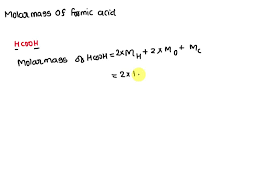 Molar mass of formic acid
HCOOH
Molar mass of HCOOH = 2×M_H + 2×M_O + M_C
= 2×1.